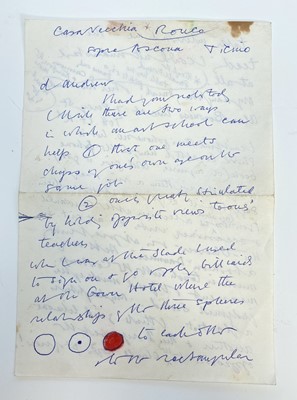 Casa Vecchia Ronco
sopra Ascona Ticino
d Andrew
I had your noted
I think there are two ways
in which an art school can
help ① that one meets
chaps of one's own age on the
same job
② one is stimulated
by holding opposite views to ones'
teachers
when I was at the Slade I used
to sign on & go & play billiards
at the Gower Hotel where the
relationships of the three spheres
to each other
& to the rectangular